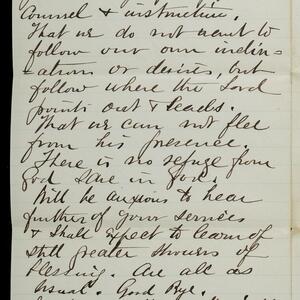 Counsel & instruction.
That we do not want to
follow our own inclin-
ations or desires, but
follow where the Lord
points out & leads.
That we can not flee
from his presence.
There is no refuge from
God save in God.
Will be anxious to hear
further of your services
& shall expect to learn of
still greater showers of
blessing. Are all as
usual. Good Bye.